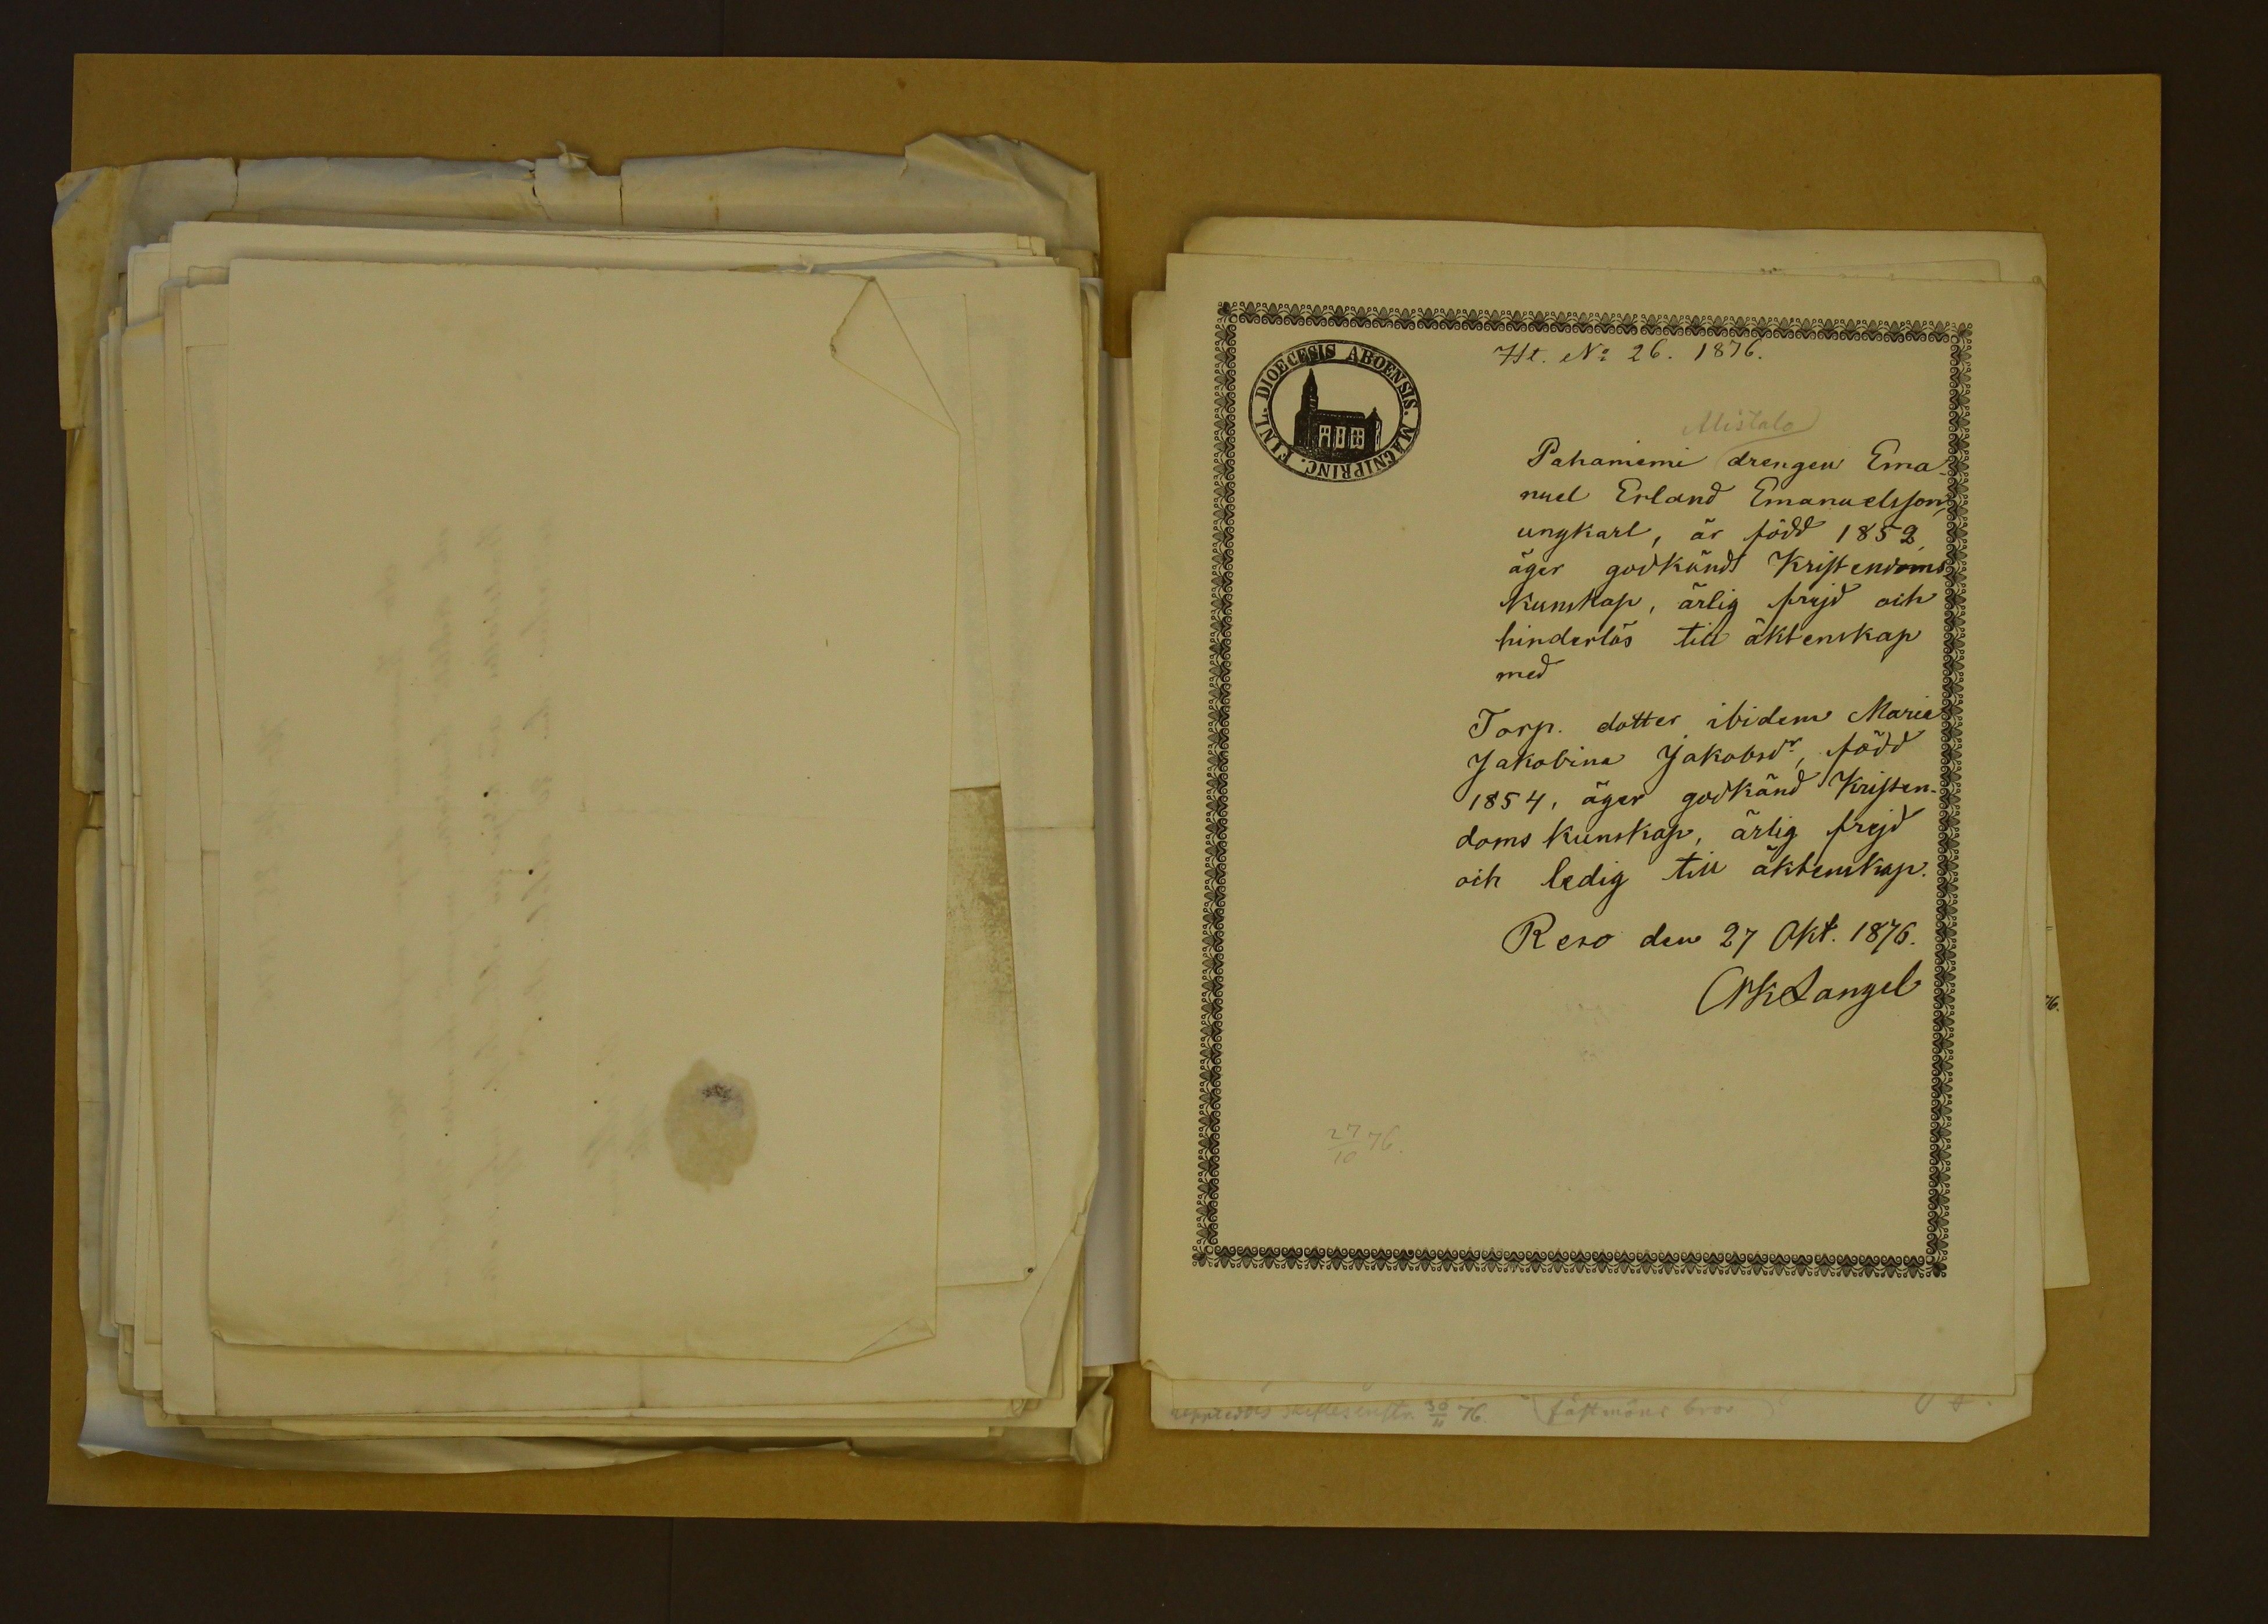 Ht. No 26. 1876.
DIOECESIS ABOENSIS. MAGNIPRINC. FINL.
Alistalo
Pahaniemi drengen Ema-
nuel Erland Emanuelsson,
ungkarl, är född 1852,
äger godkänd Kristendoms
kunskap, ärlig frejd och
hinderlös till äktenskap
med
Torp. dotter ibidem Maria
Jakobina Jakobsdr, född
1854, äger godkänd Kristen-
doms kunskap, ärlig frejd
och ledig till äktenskap.
Reso den 27 Okt. 1876.
Langel
27/10 76.
76.
30/11 76. fästmöns bror